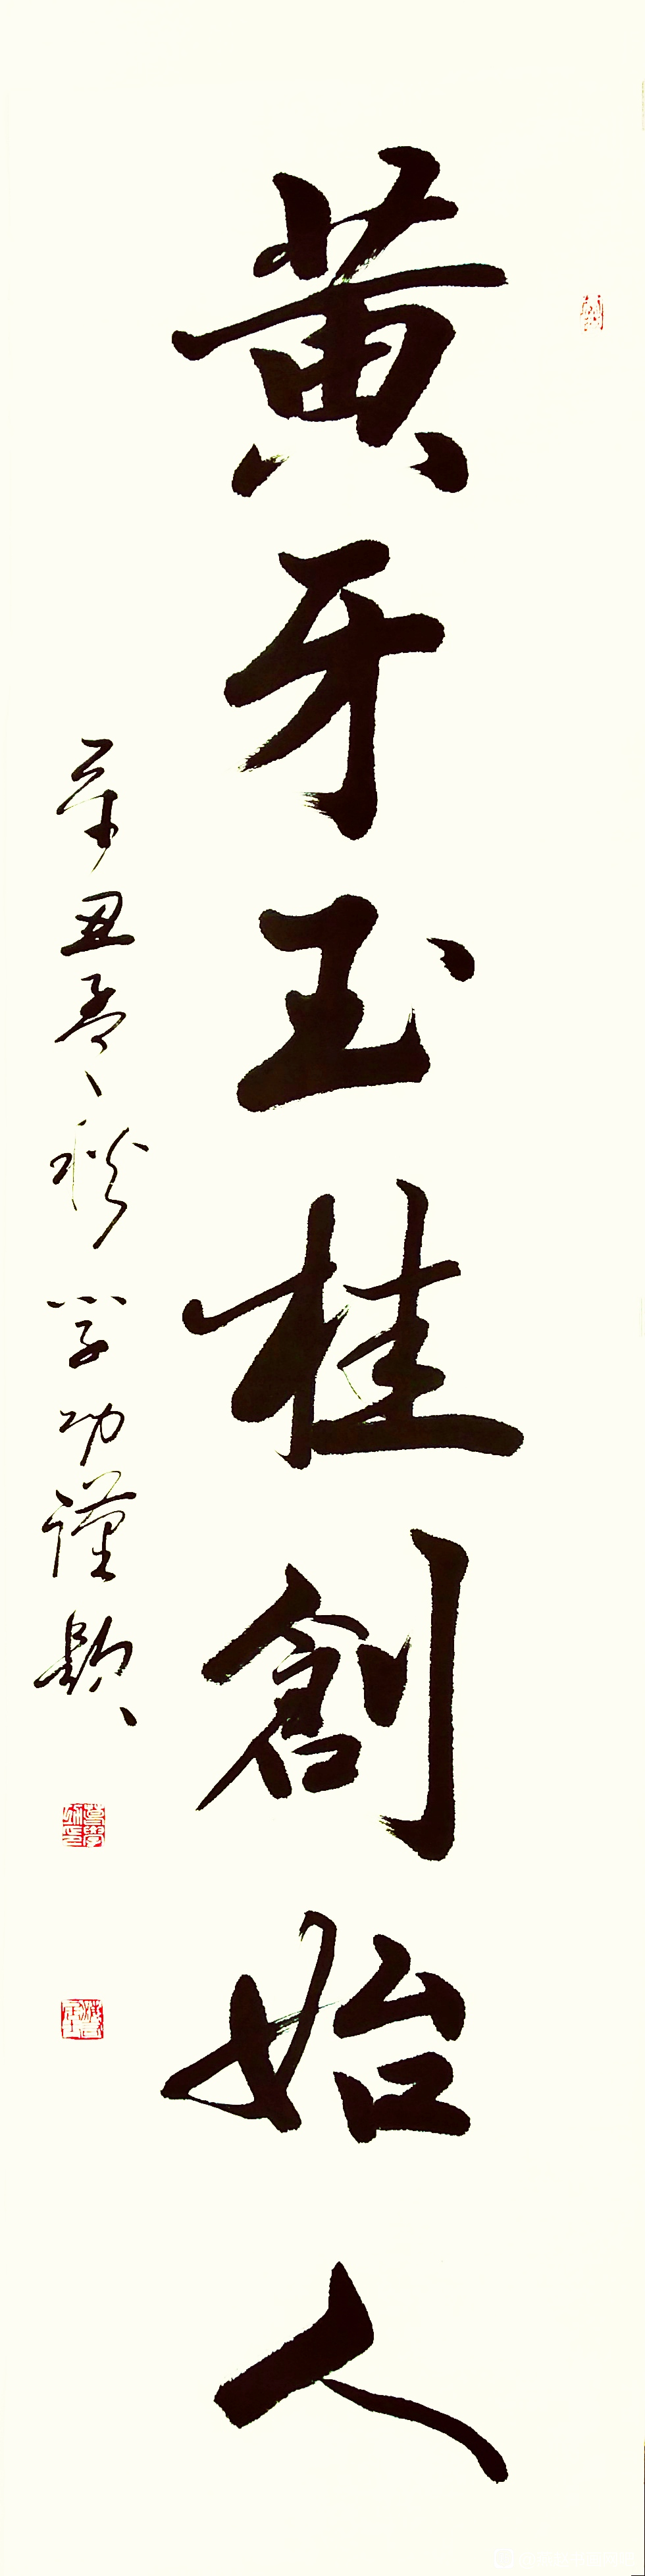 黄牙玉桂創始人
辛丑孟秋學功謹題